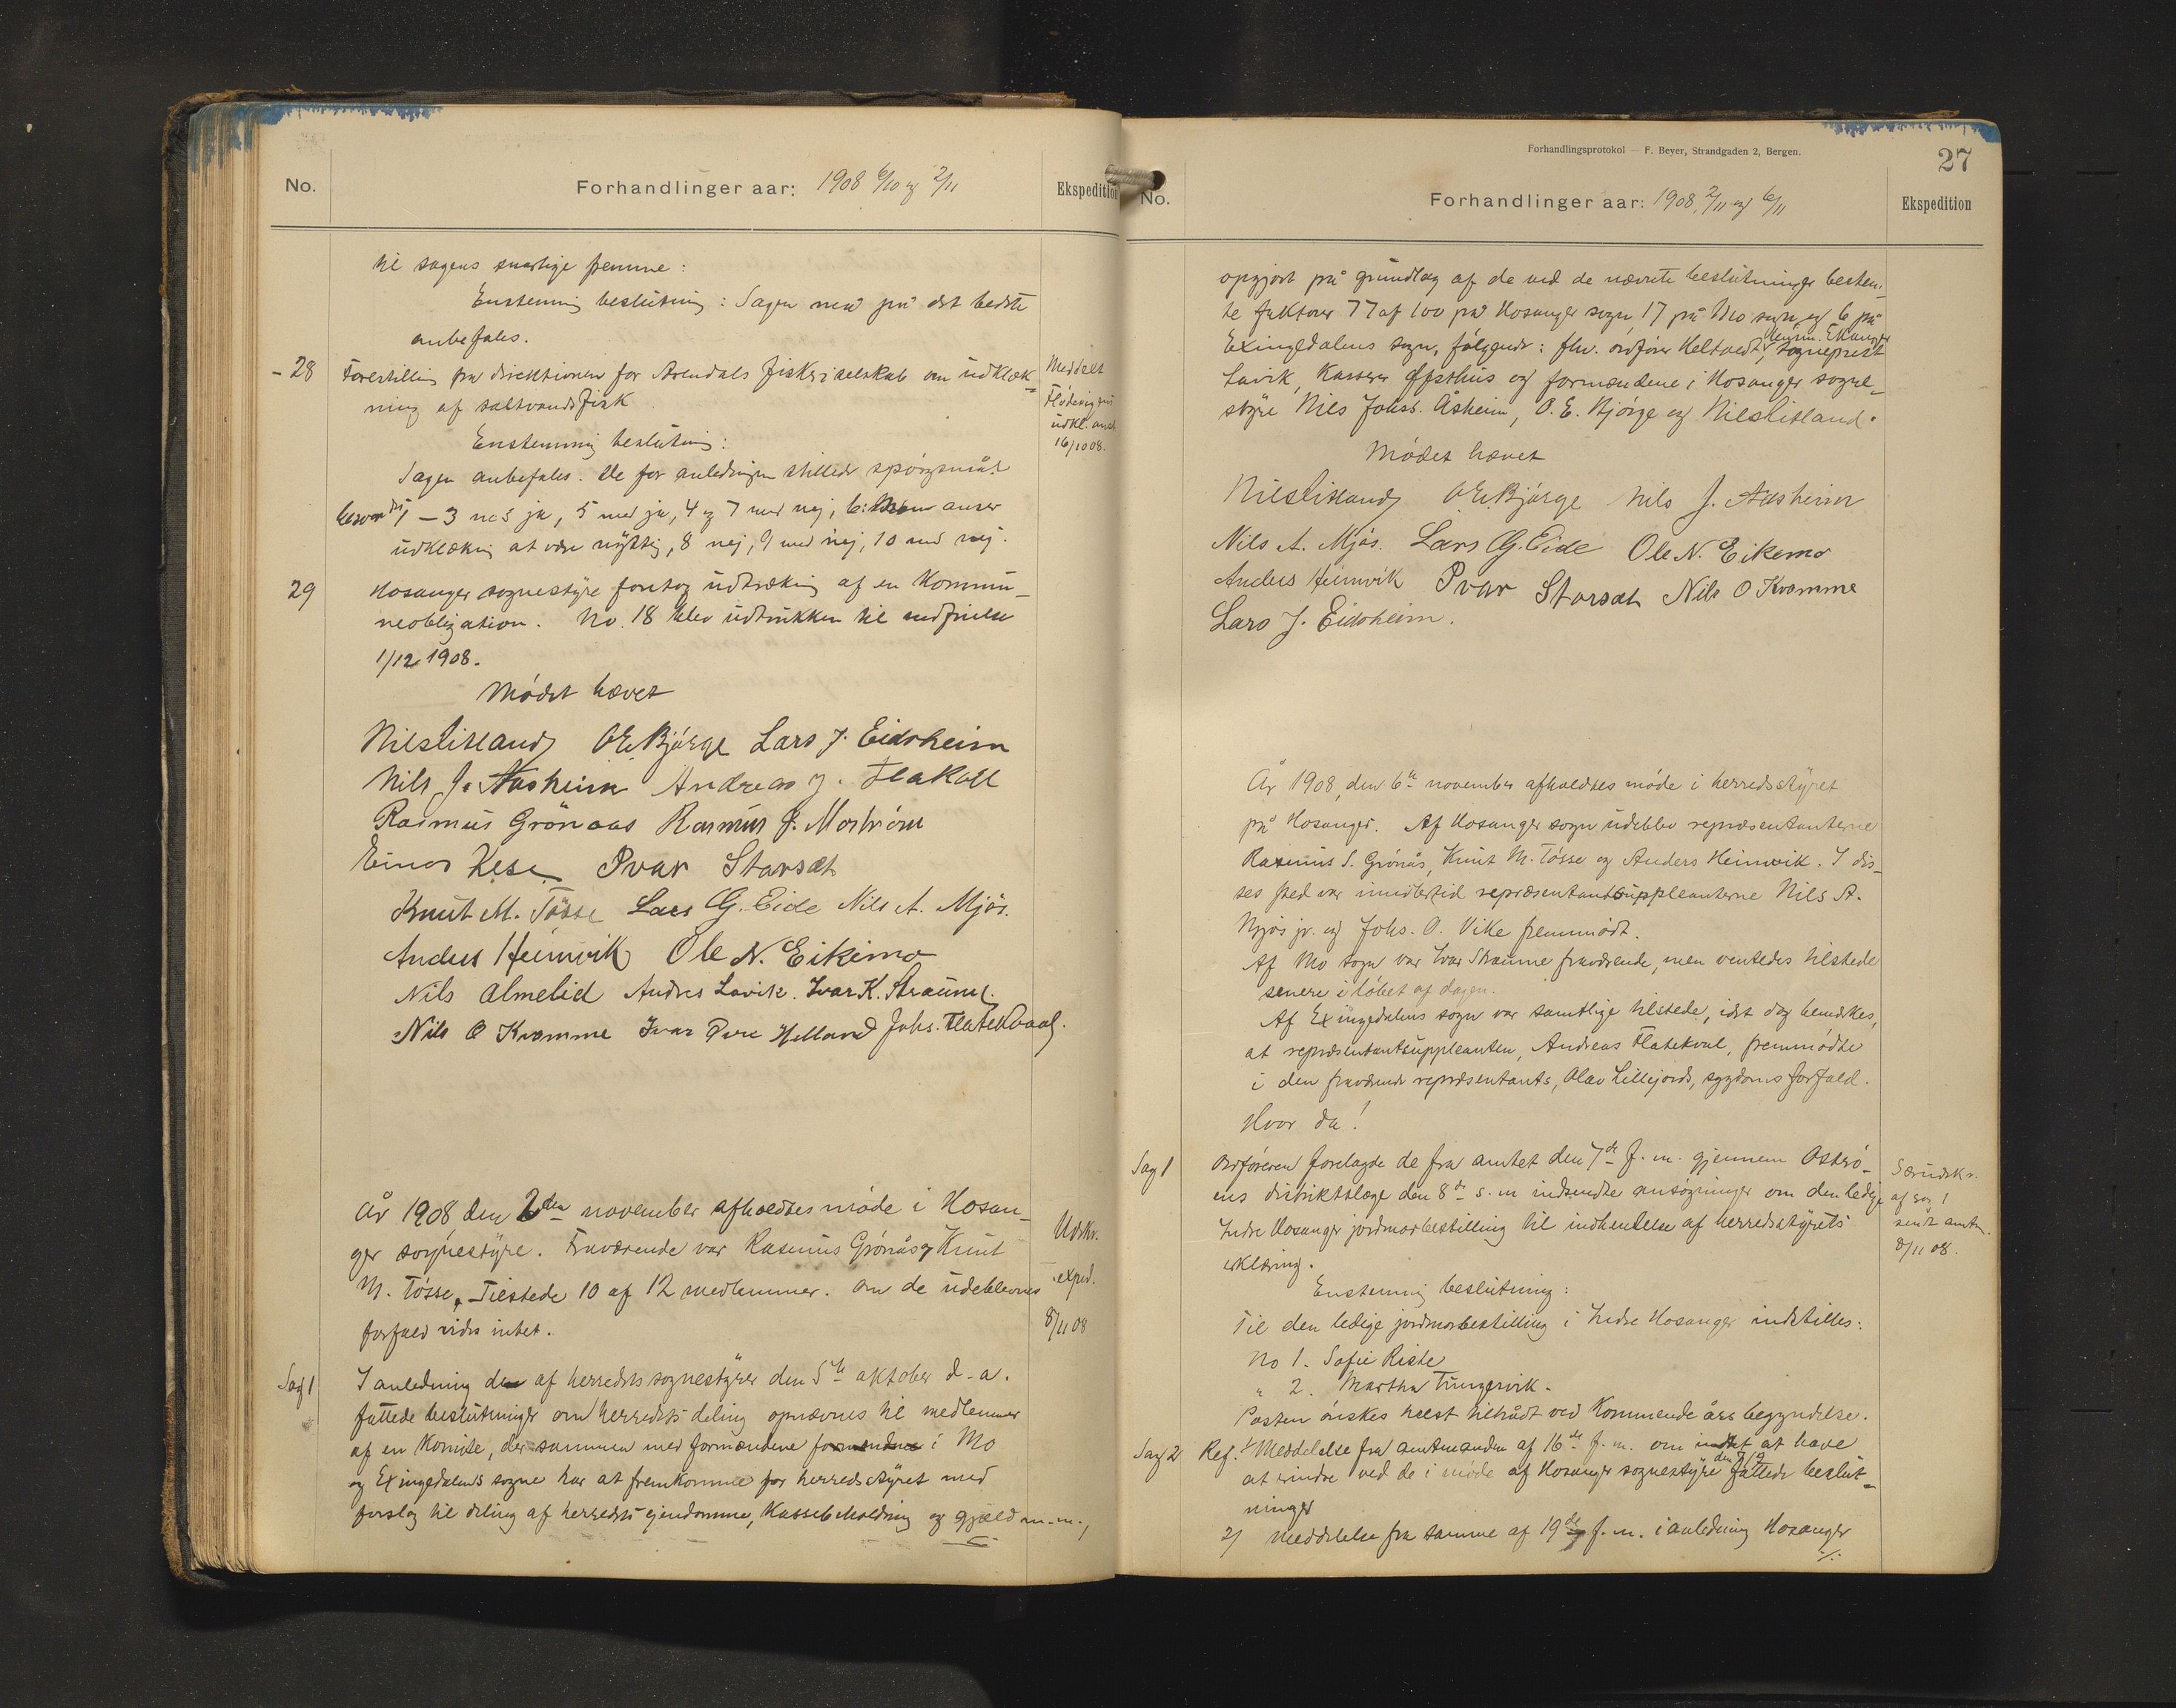 No.
Forhandlinger aar: 1908 6/10 og 2/11
Ekspedition
til sagens snarlige fremme:
Enstemmig beslutning: Sagen med på det bedste
anbefales.
- 28 Forestilling fra direktionen for Arendals fiskeriselskab om udklæk-
ning af saltvandsfisk
Enstemmig beslutning:
Sagen anbefales. De for anledningen stillede spörgsmål
besvares 1 - 3 med ja, 5 med ja, 4 og 7 med nej, 6: anser
udklækning at være nyttig, 8 nej, 9 med nej, 10 med nej.
Meddelt
Flödevigens
udkl. anst.
16/10 08.
29 Hosanger sognestyre foretog udtrækning af en Kommu-
neobligation. No. 18 blev udtrukken til indfrielse
1/12 1908.
Mödet hævet
Nils Litland O. E. Bjørge Lars J. Eidsheim
Nils J. Aasheim Andreas J. Flakoll
Rasmus Grönaas Rasmus J. Moström
Einar Hese Ivar Storset
Knut M. Tösse Lars G. Eide Nils A. Mjös.
Anders Heimvik Ole N. Eikemo
Nils Almelid Andres Lavik. Ivar K. Straume.
Nils O Kvamme Ivar Per Helland Johs. Flatekvaal.
År 1908 den 2den november afholdtes möde i Hosan-
ger sognestyre. Fraværende var Rasmus Grönås og Knut
M. Tösse. Tilstede 10 af 12 medlemmer. Om de udeblevnes
forfald vides intet.
Udskr.
exped.
8/11 08
Sag 1 I anledning de af herredets sognestyrer den 5te oktober d. a.
fattede beslutninger om herredets deling opnævnes til medlemmer
af en Komite, der sammen med formændene formændene i Mo
og Exingedalens sogne har at fremkomme for herredsstyret med
forslag til deling af herredets eiendomme, Kassebeholdning og gjæld m. m.,
Forhandlingsprotokol — F. Beyer, Strandgaden 2, Bergen.
27
No.
Forhandlinger aar: 1908, 2/11 og 6/11
Ekspedition
opgjort på grundlag af de ved de nævnte beslutninger bestem-
te faktorer 77 af 100 på Hosanger sogn, 17 på Mo sogn, og 6 på
Exingedalens sogn, fölgende: fhv. ordförer Heltvedt, sogneprest
Lavik, Kasserer Offsthus og formændene i Hosanger sogne-
styre Nils Johss. Åsheim, O. E. Bjørge og Nils Litland.
Mødet hævet
Nils Litland O. E. Bjørge Nils J. Aasheim
Nils A. Mjös. Lars G. Eide Ole N. Eikemo
Anders Heimvik Ivar Storset Nils O Kvamme
Lars J. Eidsheim.
År 1908, den 6te november afholdtes møde i herredsstyret
på Hosanger. Af Hosanger sogn udeblev repræsentanterne
Rasmus S. Grönås, Knut M. Tösse og Anders Heimvik. I dis-
ses sted var imidlertid repræsentantsuppleanterne Nils A.
Mjös jr. og Johs. O. Vike fremmødt.
Af Mo sogn var Ivar Straume fraværende, men ventedes tilstede
senere i löbet af dagen.
Af Exingedalens sogn var samtlige tilstede, idet dog bemærkes,
at repræsentantsuppleanten, Andreas Flatekval, fremmødte
i den fraværende repræsentants, Olav Lillejords, sygdoms forfald.
Hvor da!
Sag 1 Ordföreren forelagde de fra amtet den 7de f. m. gjennem Osterö-
ens distriktslæge den 8de s. m. indsendte ansögninger om den ledige
Indre Hosanger jordmorbestilling til indhentelse af herredsstyrets
erklæring.
Særudskr.
af sag 1
sendt amtm.
8/11 08.
Enstemmig beslutning:
Til den ledige jordmorbestilling i Indre Hosanger indstilles:
No 1. Sofie Riste
" 2. Martha Tungesvik.
Posten önskes helst tiltrådt ved Kommende års begyndelse.
Sag 2 Ref. 1/ Meddelelse fra amtmanden af 16de f. m. om intet at have
at erindre ved de i møde af Hosanger sognestyre den 7/9 fattede beslut-
ninger
2/ Meddelelse fra samme af 19de f. m. i anledning Hosanger
./.